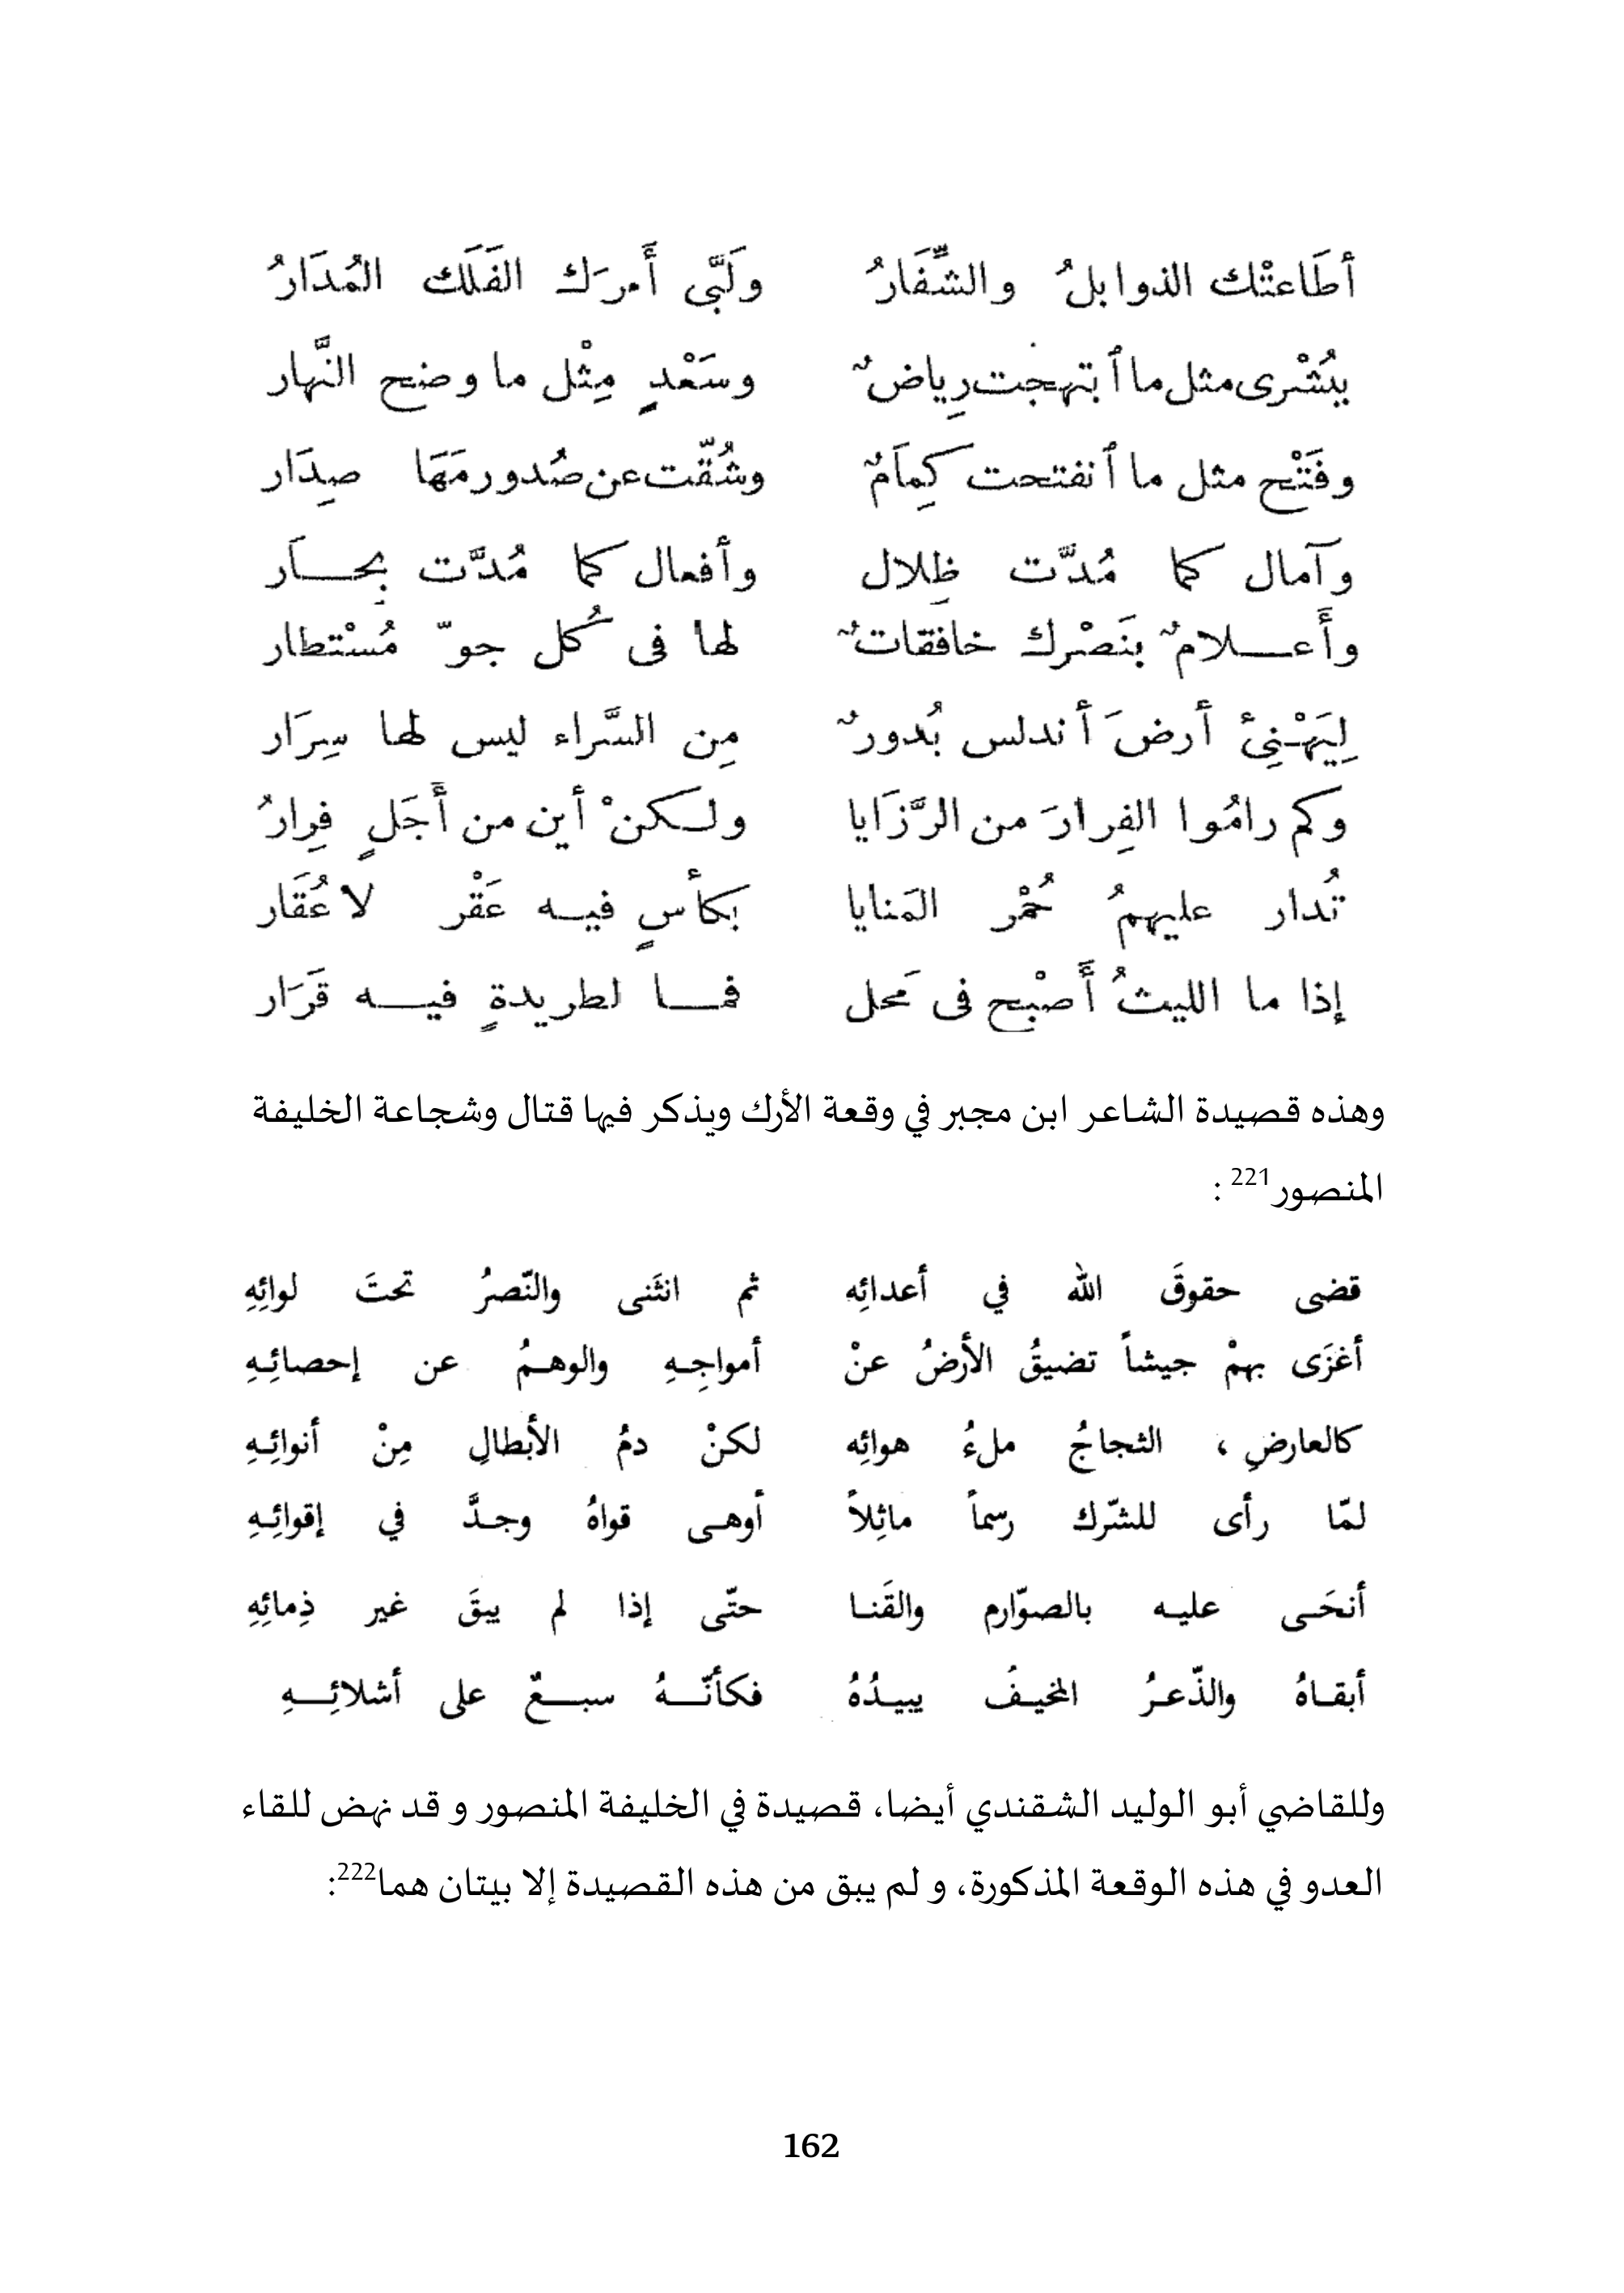 أطَاعتْك الذوابلُ والشِّفَارُ ولَبَّى أَمرَك الفَلَك المُدَارُ
ببُشْرى مثل ما ٱبتهجت رِياضٌ وسَعْدٍ مِثْل ما وضح النَّهار
وفَتْح مثل ما ٱنفتحت كِمَامٌ وشُقّت عن صُدور مَهَا صِدَار
وآمال كما مُدَّت ظِلال وأفعال كما مُدَّت بِحــار
وأَعــلامٌ بنَصْرك خافقاتٌ لها فى كُل جوّ مُسْتطار
لِيَهْنِئْ أرضَ أندلس بُدورٌ مِن السَّراء ليس لها سِرَار
وكم رامُوا الفِرارَ من الرَّزَايا ولـكنْ أين من أَجَلٍ فِرارُ
تُدار عليهمُ حُمْر المَنايا بكأسٍ فيـه عَقْر لا عُقَار
إذا ما الليثُ أَصْبح فى مَحل فمـا لطريدةٍ فيـه قَرَار
وهذه قصيدة الشاعر ابن مجبر في وقعة الأرك ويذكر فيها قتال وشجاعة الخليفة
المنصور221 :
قضى حقوقَ الله في أعدائِه ثم انثَنى والنّصرُ تحتَ لوائِهِ
أغزَى بهمْ جيشاً تضيقُ الأرضُ عنْ أمواجِـهِ والوهـمُ عن إحصائِـهِ
كالعارضِ ، الثجاجُ ملءُ هوائِه لكنْ دمُ الأبطالِ مِنْ أنوائِـهِ
لمّا رأى للشّرك رسماً ماثِلاً أوهـى قواهُ وجـدَّ في إقوائِـهِ
أنحَـى عليـه بالصوّارم والقَنـا حتّى إذا لم يبقَ غير ذِمائِهِ
أبقـاهُ والذّعـرُ المخيـفُ يبيـدُهُ فكأنّـهُ سبـعٌ على أشلائِـهِ
وللقاضي أبو الوليد الشقندي أيضا، قصيدة في الخليفة المنصور و قد نهض للقاء
العدو في هذه الوقعة المذكورة، و لم يبق من هذه القصيدة إلا بيتان هما222:
162